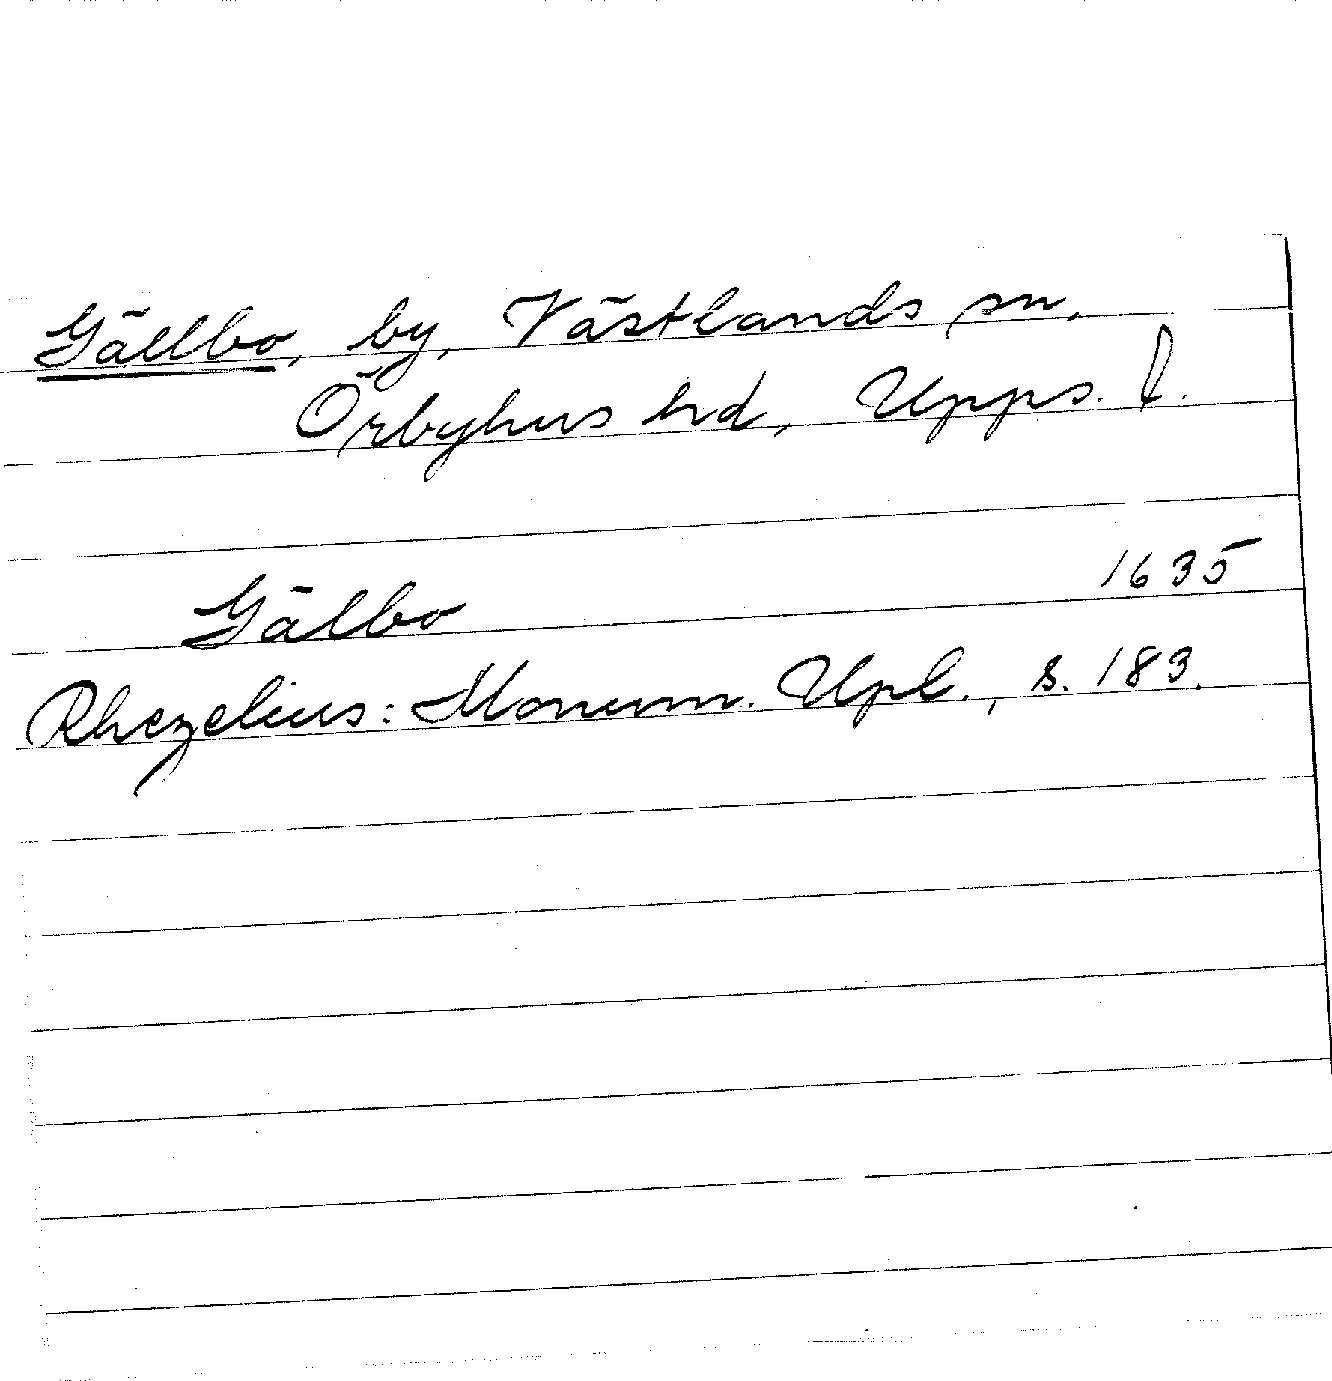 Gällbo, by, Västlands sn,
Örbyhus hd, Upps. l.
Gälbo 1635
Rhezelius: Monum. Upl., s. 183.